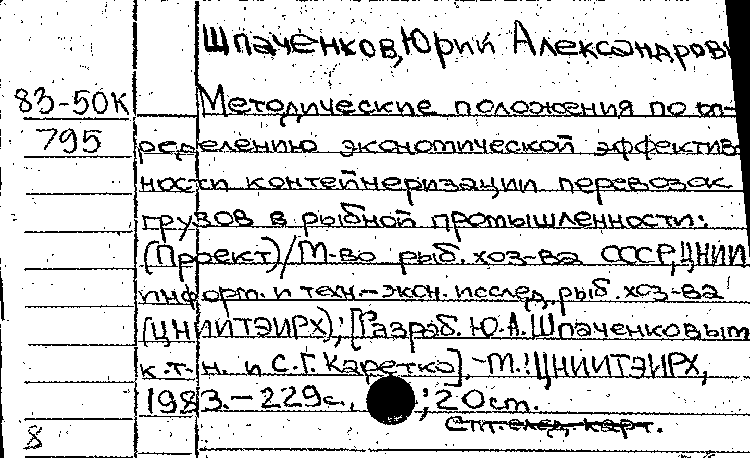 Шпаченков, Юрий Александрови
83-50К
795
Методические положения по оп-
ределению экономической эффектив-
ности контейнеризации перевозок
грузов в рыбной промышленности:
(Проект)/М-во рыб. хоз-ва СССР, ЦНИИ
информ. и техн.-экон. исслед. рыб. хоз-ва
(ЦНИИТЭИРХ); [Разраб. Ю.А. Шпаченковым
к.т.н. и С.Г. Каретко]. -М.: ЦНИИТЭИРХ,
1983.-229с., ; 20см.
См. след. карт.
8